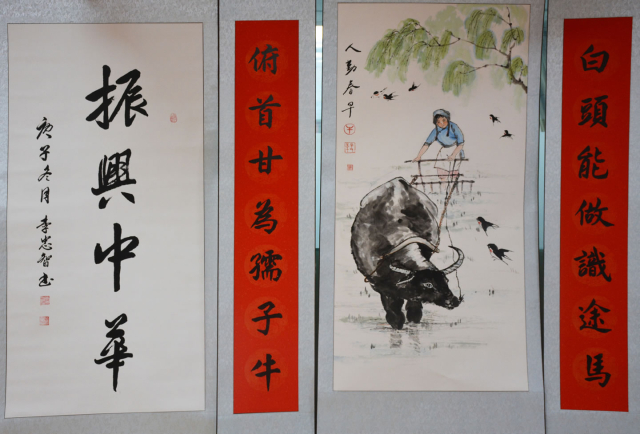 白頭能做識途馬
人勤春早
俯首甘為孺子牛
振興中華
庚子冬月李忠智书